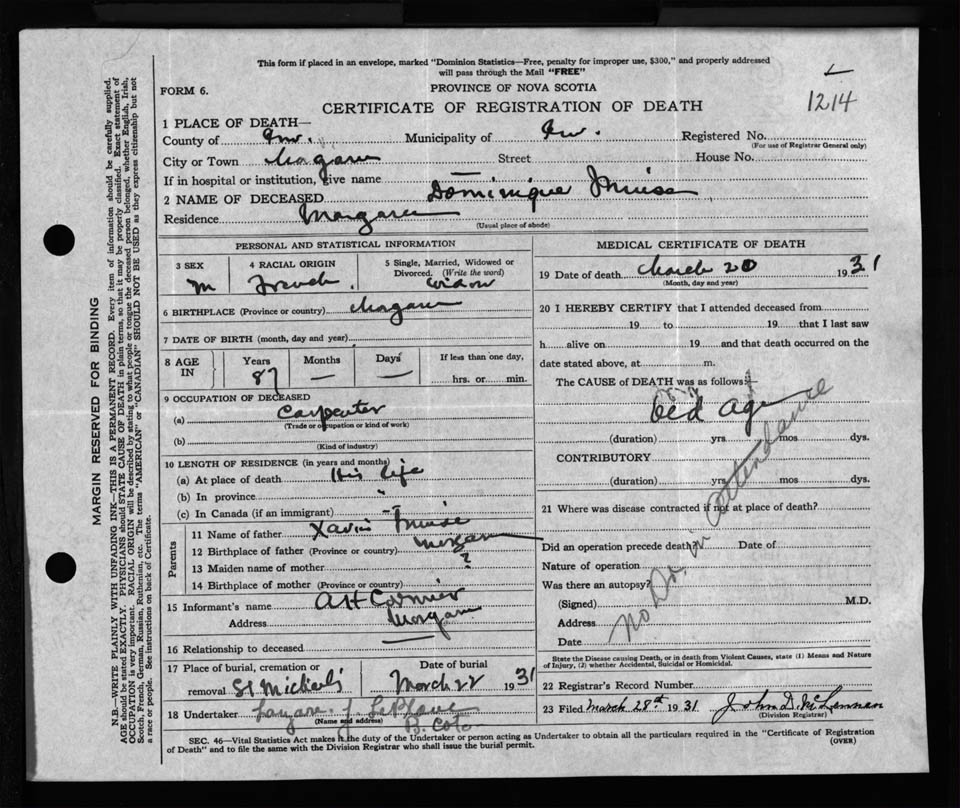 This form if placed in an envelope, marked "Dominion Statistics—Free, penalty for improper use, $300," and properly addressed
will pass through the Mail "FREE"
FORM 6.
PROVINCE OF NOVA SCOTIA
1214
CERTIFICATE OF REGISTRATION OF DEATH
1 PLACE OF DEATH—
County of Inv. Municipality of Inv. Registered No.
(For use of Registrar General only)
City or Town Margaree Street House No.
If in hospital or institution, give name —
2 NAME OF DECEASED Dominique Muise
Residence Margaree
(Usual place of abode)
PERSONAL AND STATISTICAL INFORMATION
3 SEX 4 RACIAL ORIGIN 5 Single, Married, Widowed or
Divorced. (Write the word)
M French.
6 BIRTHPLACE (Province or country) Margaree
7 DATE OF BIRTH (month, day and year)
8 AGE IN Years Months Days If less than one day,
87 — — hrs. or min.
9 OCCUPATION OF DECEASED
(a) Carpenter
(Trade or occupation or kind of work)
(b)
(Kind of industry)
10 LENGTH OF RESIDENCE (in years and months)
(a) At place of death His life
(b) In province "
(c) In Canada (if an immigrant)
Parents
11 Name of father Xavier Muise
12 Birthplace of father (Province or country) Margaree
13 Maiden name of mother ?
14 Birthplace of mother (Province or country)
15 Informant's name Cormier
Address Margaree
16 Relationship to deceased —
17 Place of burial, cremation or Date of burial
removal St Michael's March 22 1931
18 Undertaker
(Name and address)
B. Cote
MEDICAL CERTIFICATE OF DEATH
19 Date of death March 20 1931
(Month, day and year)
20 I HEREBY CERTIFY that I attended deceased from
19 to 19 that I last saw
h alive on 19 and that death occurred on the
date stated above, at m.
The CAUSE of DEATH was as follows:
Old age
(duration) yrs. mos. dys.
CONTRIBUTORY
(duration) yrs. mos. dys.
21 Where was disease contracted if not at place of death?
Did an operation precede death? Date of
Nature of operation
Was there an autopsy?
(Signed) M.D.
Address
Date
No Dr. in attendance
State the Disease causing Death, or in death from Violent Causes, state (1) Means and Nature
of Injury, (2) whether Accidental, Suicidal or Homicidal.
22 Registrar's Record Number
23 Filed March 28th 1931 John D. McLennan
(Division Registrar)
SEC. 46—Vital Statistics Act makes it the duty of the Undertaker or person acting as Undertaker to obtain all the particulars required in the "Certificate of Registration
of Death" and to file the same with the Division Registrar who shall issue the burial permit.
(OVER)
MARGIN RESERVED FOR BINDING
N.B.—WRITE PLAINLY WITH UNFADING INK—THIS IS A PERMANENT RECORD. Every item of information should be carefully supplied.
AGE should be stated EXACTLY. PHYSICIANS should STATE CAUSE OF DEATH in plain terms, so that it may be properly classified. Exact statement of
OCCUPATION is very important. RACIAL ORIGIN will be described by stating to what people or tongue the deceased person belonged, whether English, Irish,
Scotch, French, German, Russian, Ruthenian, etc. The terms "AMERICAN" or "CANADIAN" SHOULD NOT BE USED as they express citizenship but not
a race or people. See instructions on back of Certificate.